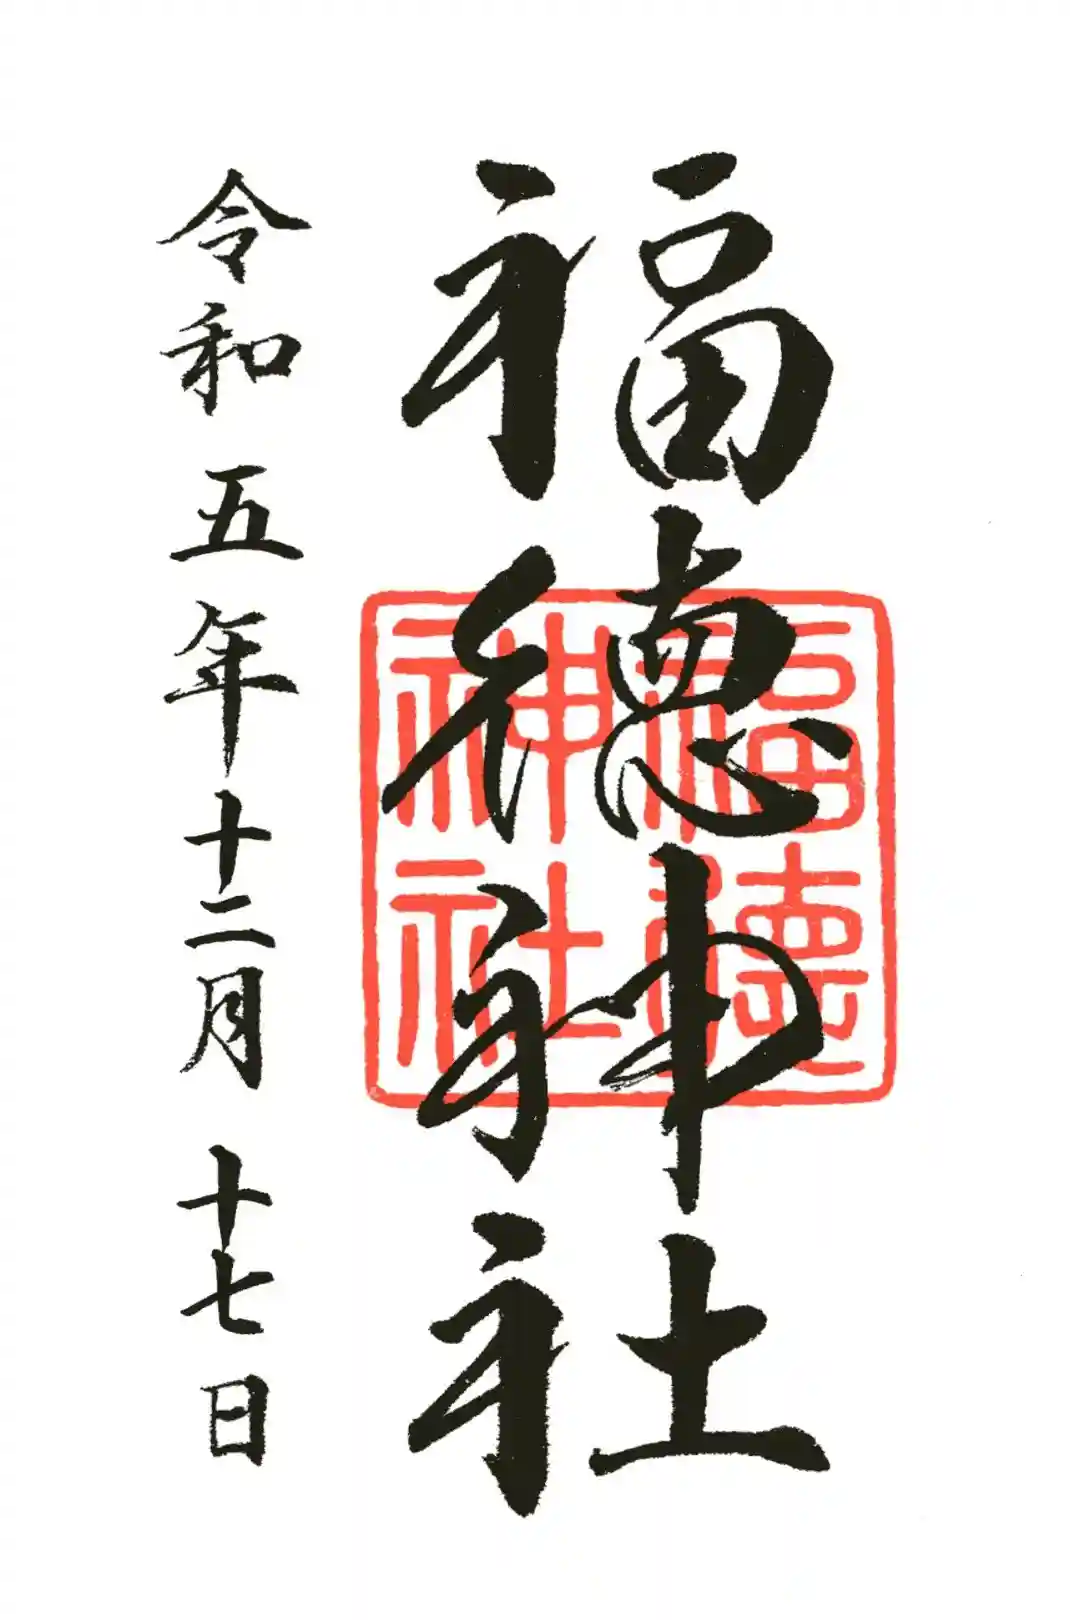 福徳神社
福徳
神社
令和五年十二月十七日